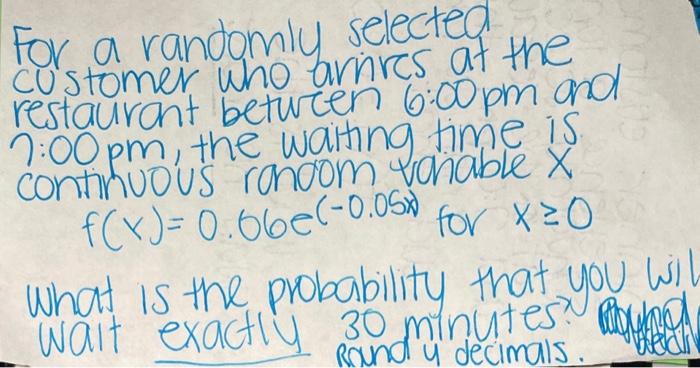 For a randomly selected
customer who arrives at the
restaurant between 6:00pm and
7:00pm, the waiting time is
continuous random variable X
f(x) = 0.06e^(-0.05x) for x ≥ 0
What is the probability that you will
wait exactly 30 minutes?
Round 4 decimals.